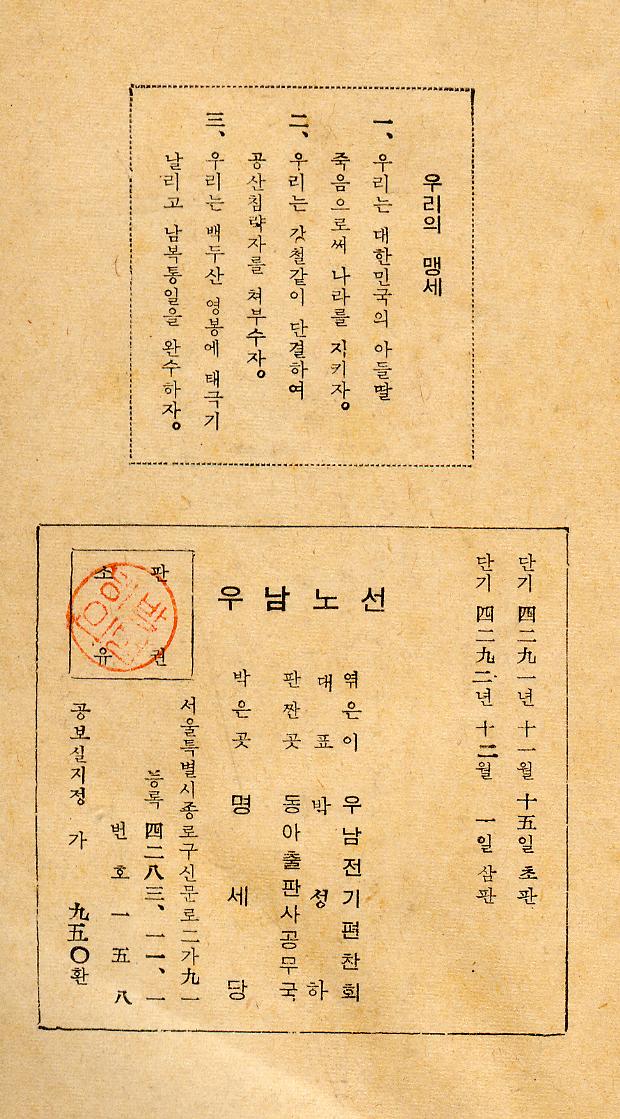 우리의 맹세
一、우리는 대한민국의 아들딸
죽음으로써 나라를 지키자。
二、우리는 강철같이 단결하여
공산침략자를 쳐부수자。
三、우리는 백두산 영봉에 태극기
날리고 남북통일을 완수하자。
단기 四二九一년 十一월 十五일 초판
단기 四二九二년 十二월 一일 삼판
우남노선
엮은이 우남전기편찬회
대표 박성하
판짠곳 동아출판사공무국
박은곳 명세당
서울특별시종로구신문로二가九一
등록 四二八三、一一、一
번호 一五八
공보실지정 가 九五〇환
판권
소유